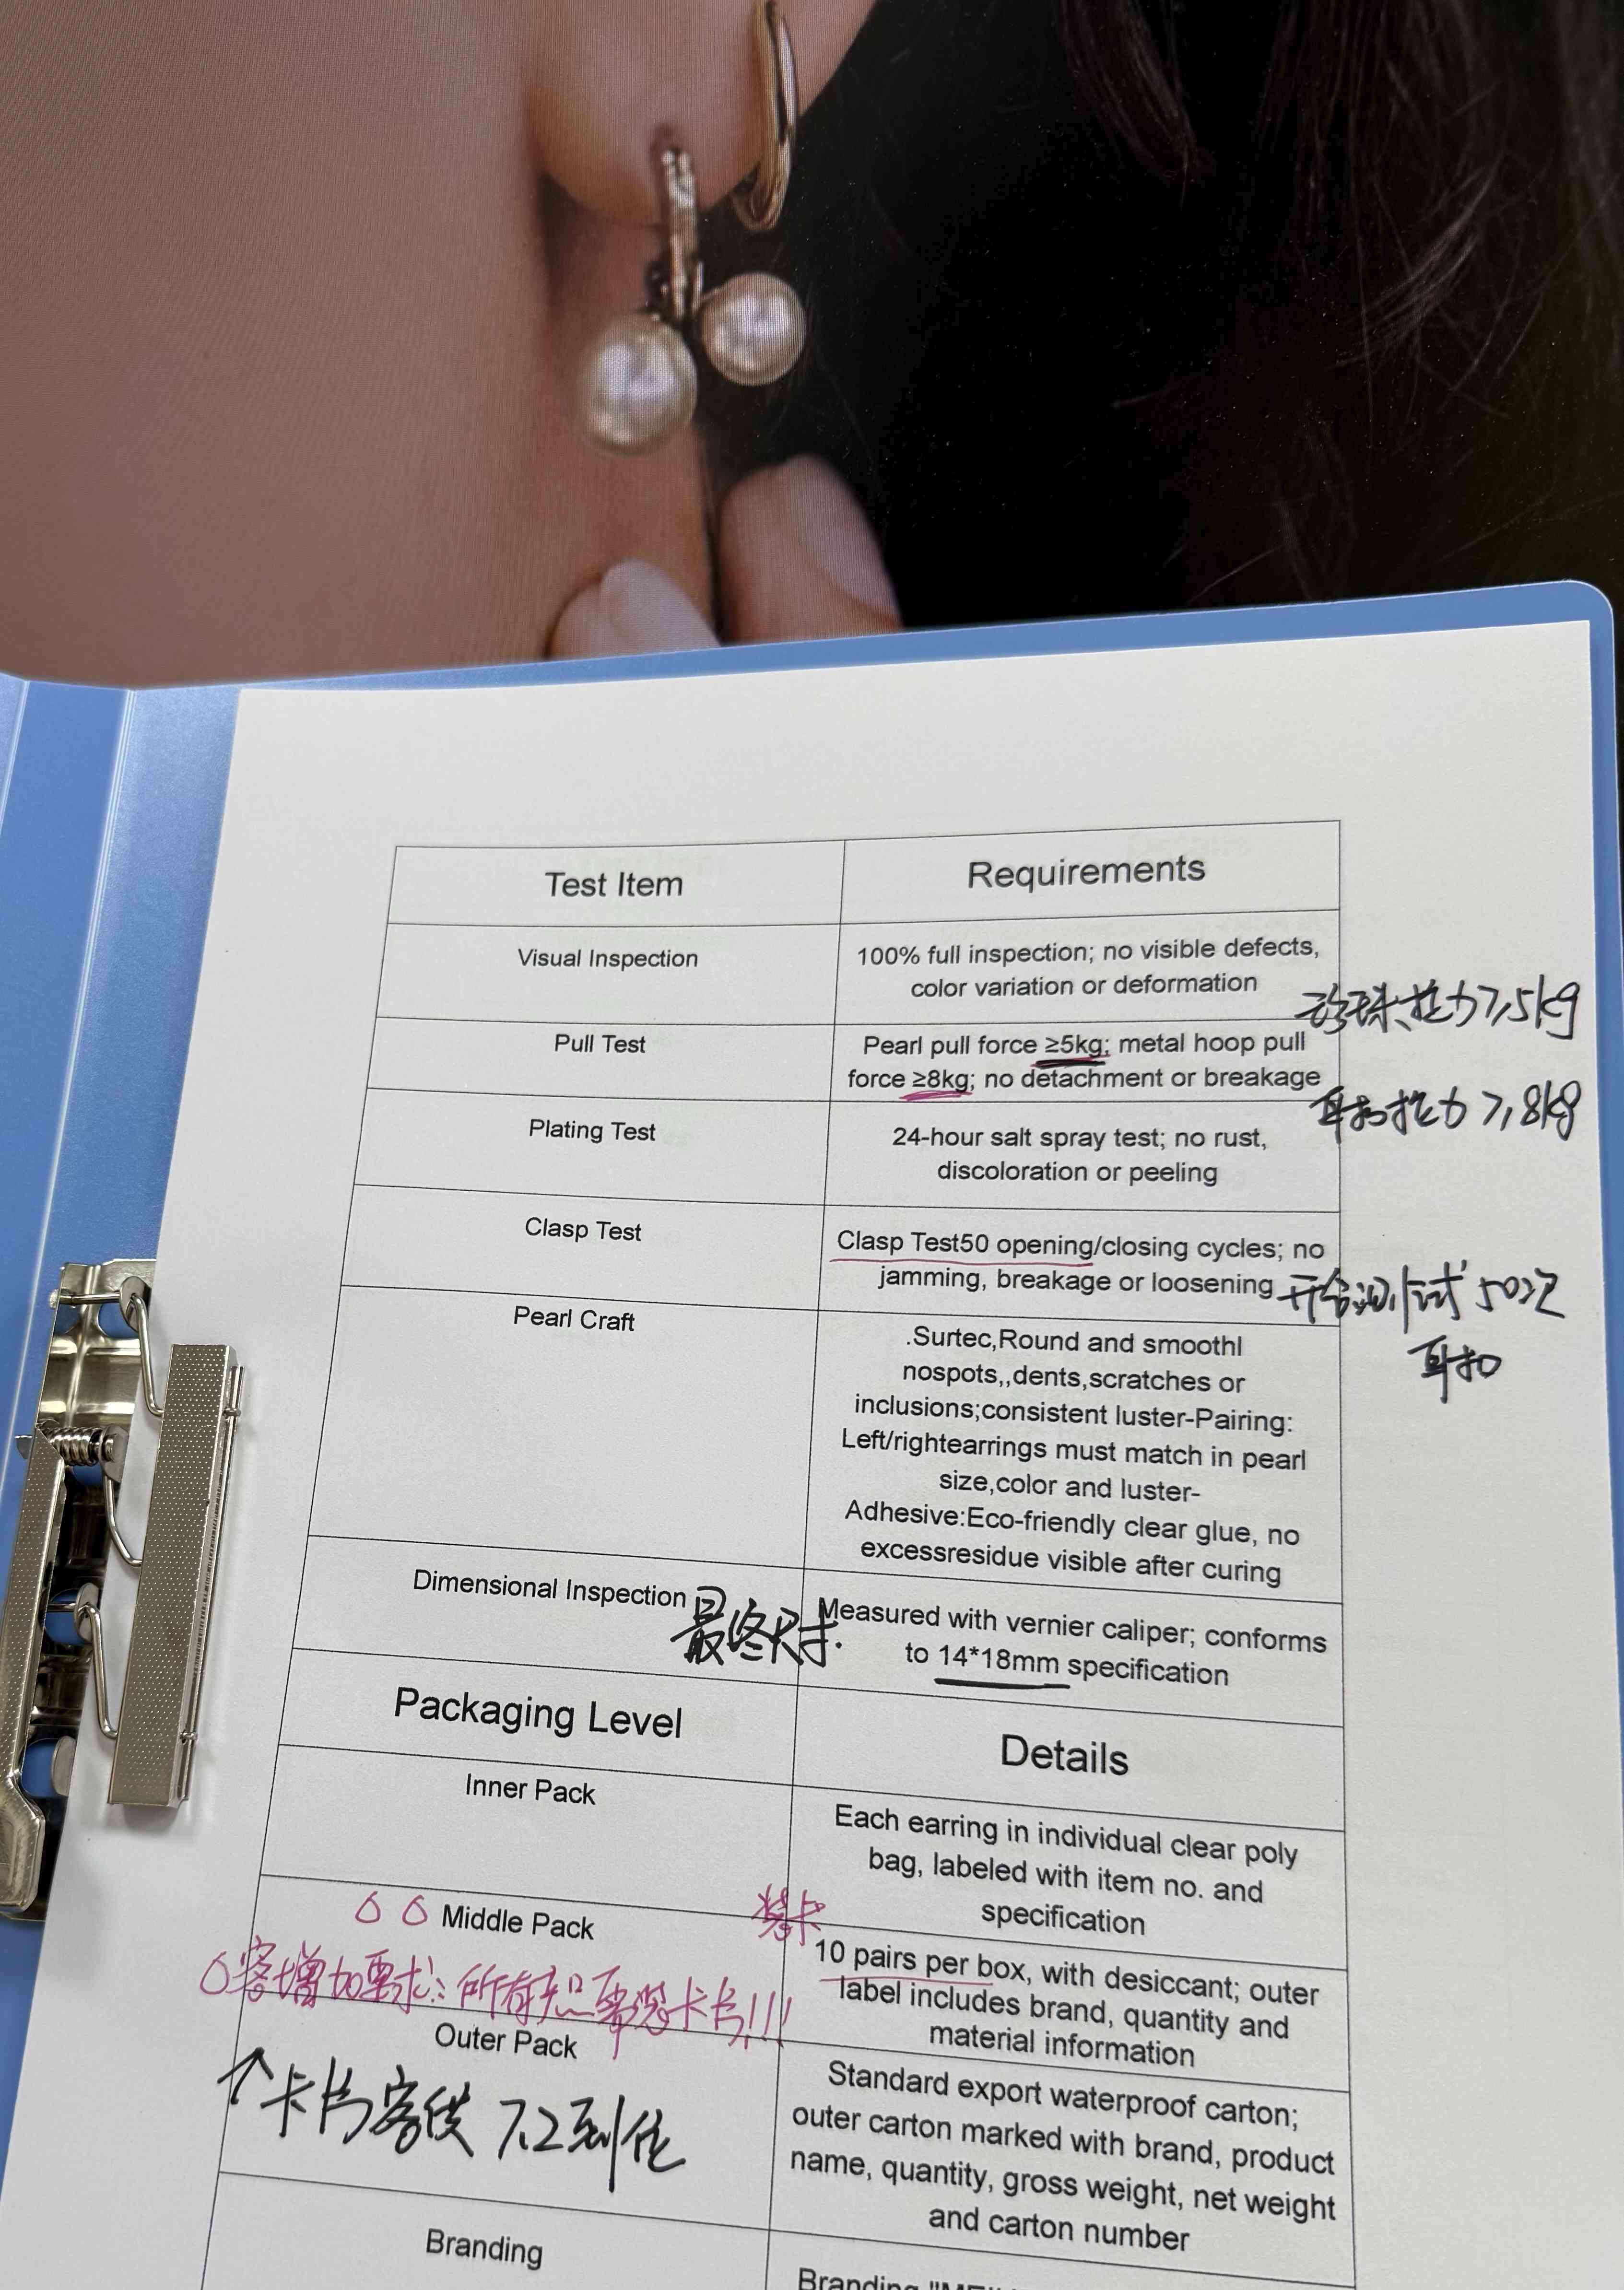 Test Item
Requirements
Visual Inspection
100% full inspection; no visible defects,
color variation or deformation
珍珠拉力≥5kg
Pull Test
Pearl pull force ≥5kg; metal hoop pull
force ≥8kg; no detachment or breakage
耳扣拉力≥8kg
Plating Test
24-hour salt spray test; no rust,
discoloration or peeling
Clasp Test
Clasp Test50 opening/closing cycles; no
jamming, breakage or loosening
开合测试50次
耳扣
Pearl Craft
.Surtec,Round and smoothl
nospots,,dents,scratches or
inclusions;consistent luster-Pairing:
Left/rightearrings must match in pearl
size,color and luster-
Adhesive:Eco-friendly clear glue, no
excessresidue visible after curing
Dimensional Inspection
最终尺寸.
Measured with vernier caliper; conforms
to 14*18mm specification
Packaging Level
Details
Inner Pack
Each earring in individual clear poly
bag, labeled with item no. and
specification
Middle Pack
卡
10 pairs per box, with desiccant; outer
label includes brand, quantity and
material information
客增加要求:所有产品要卡片!!!
Outer Pack
↑卡片客供 7.2到位
Standard export waterproof carton;
outer carton marked with brand, product
name, quantity, gross weight, net weight
and carton number
Branding
Branding